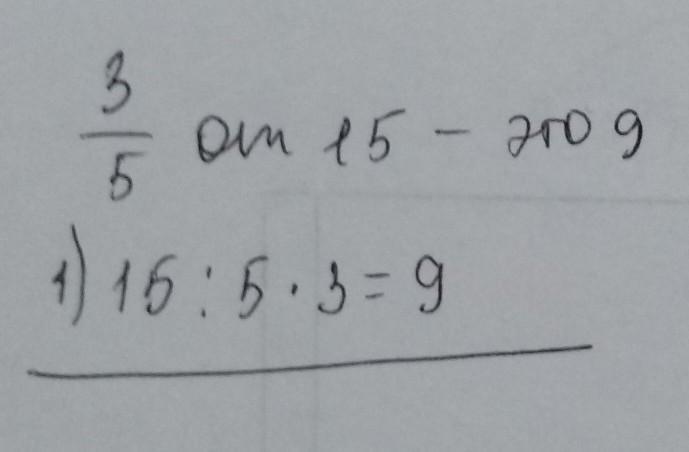 3/5 от 15 - это 9
1) 15 : 5 · 3 = 9